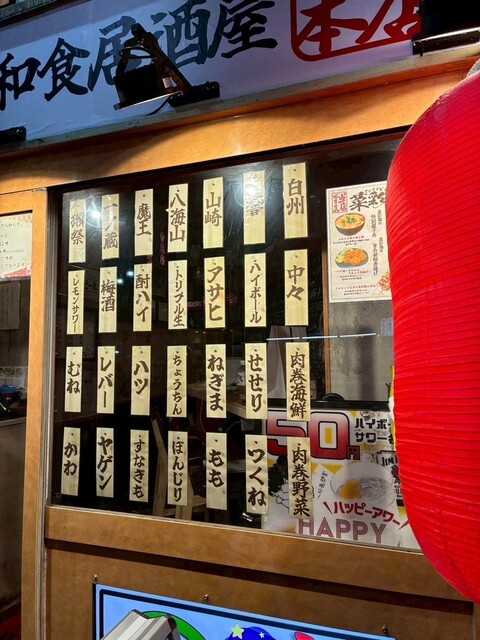 和食居酒屋 本店
白州
響
山崎
八海山
魔王
一ノ蔵
獺祭
中々
ハイボール
アサヒ
トリプル生
酎ハイ
梅酒
レモンサワー
肉巻海鮮
せせり
ねぎま
ちょうちん
ハツ
レバー
むね
肉巻野菜
つくね
もも
ぼんじり
すなぎも
ヤゲン
かわ
菜彩
50円
ハイボ
サワー
ハッピーアワー
HAPPY